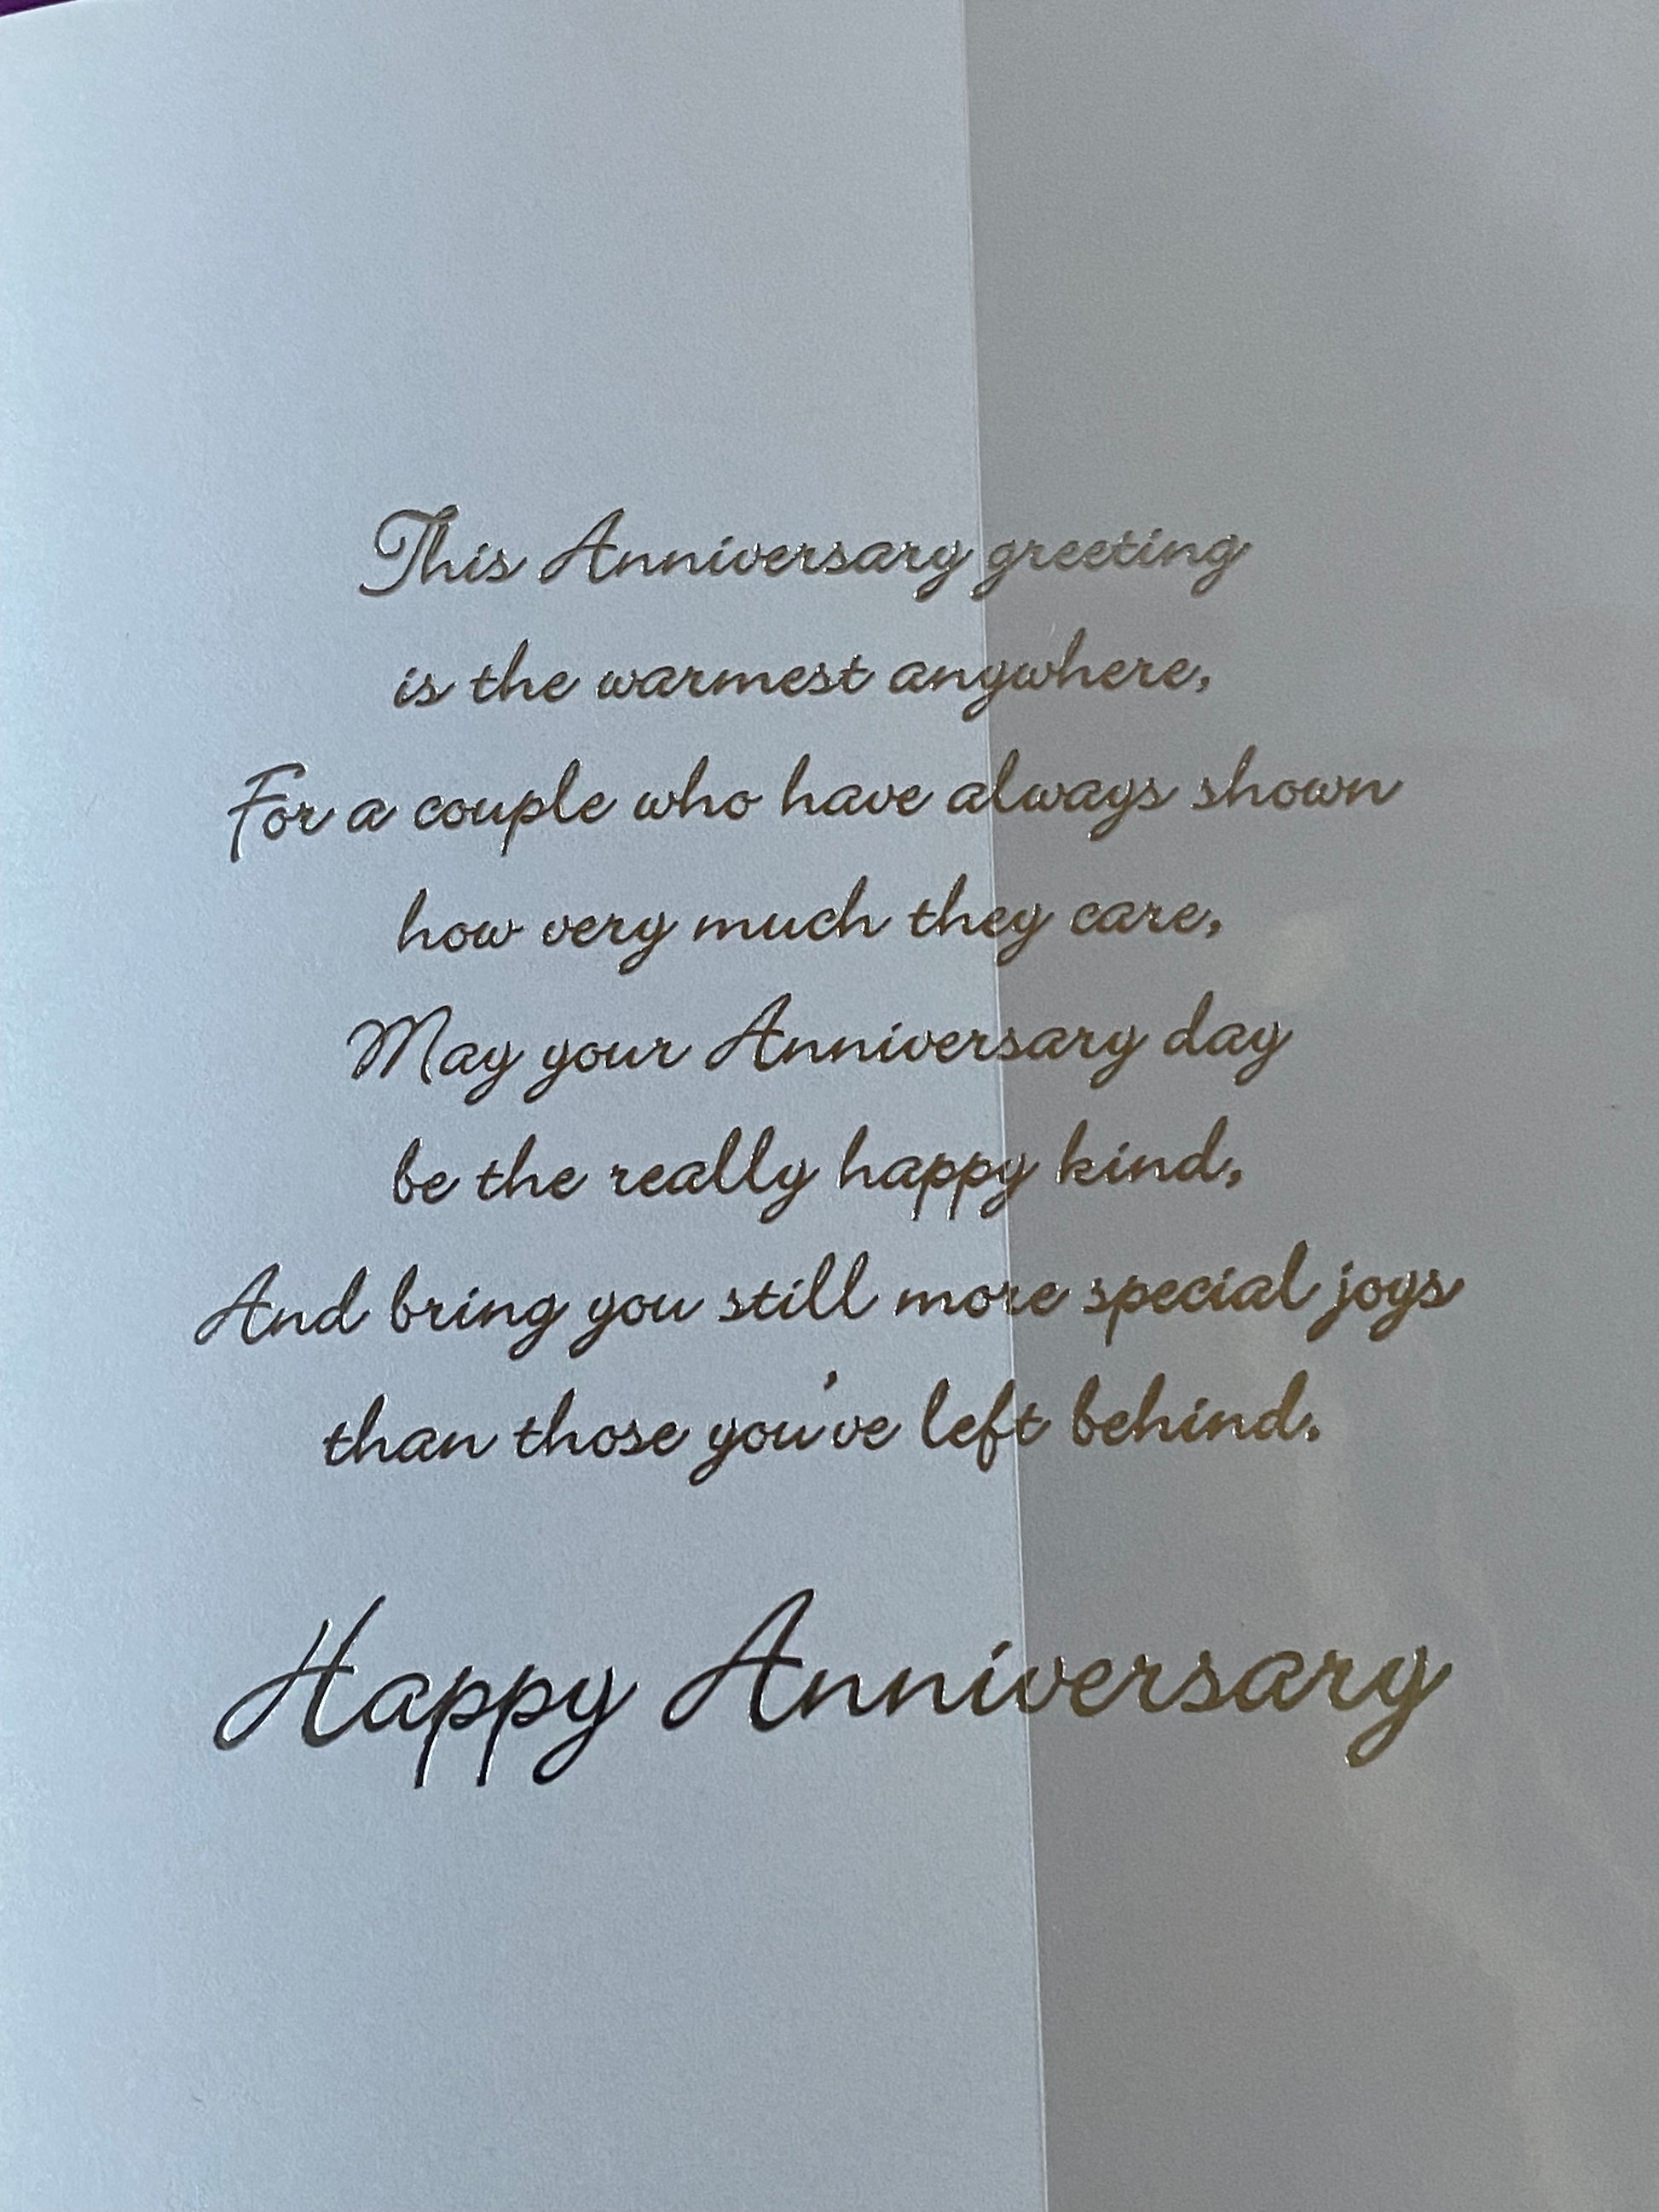 This Anniversary greeting
is the warmest anywhere,
For a couple who have always shown
how very much they care,
May your Anniversary day
be the really happy kind,
And bring you still more special joys
than those you've left behind.
Happy Anniversary